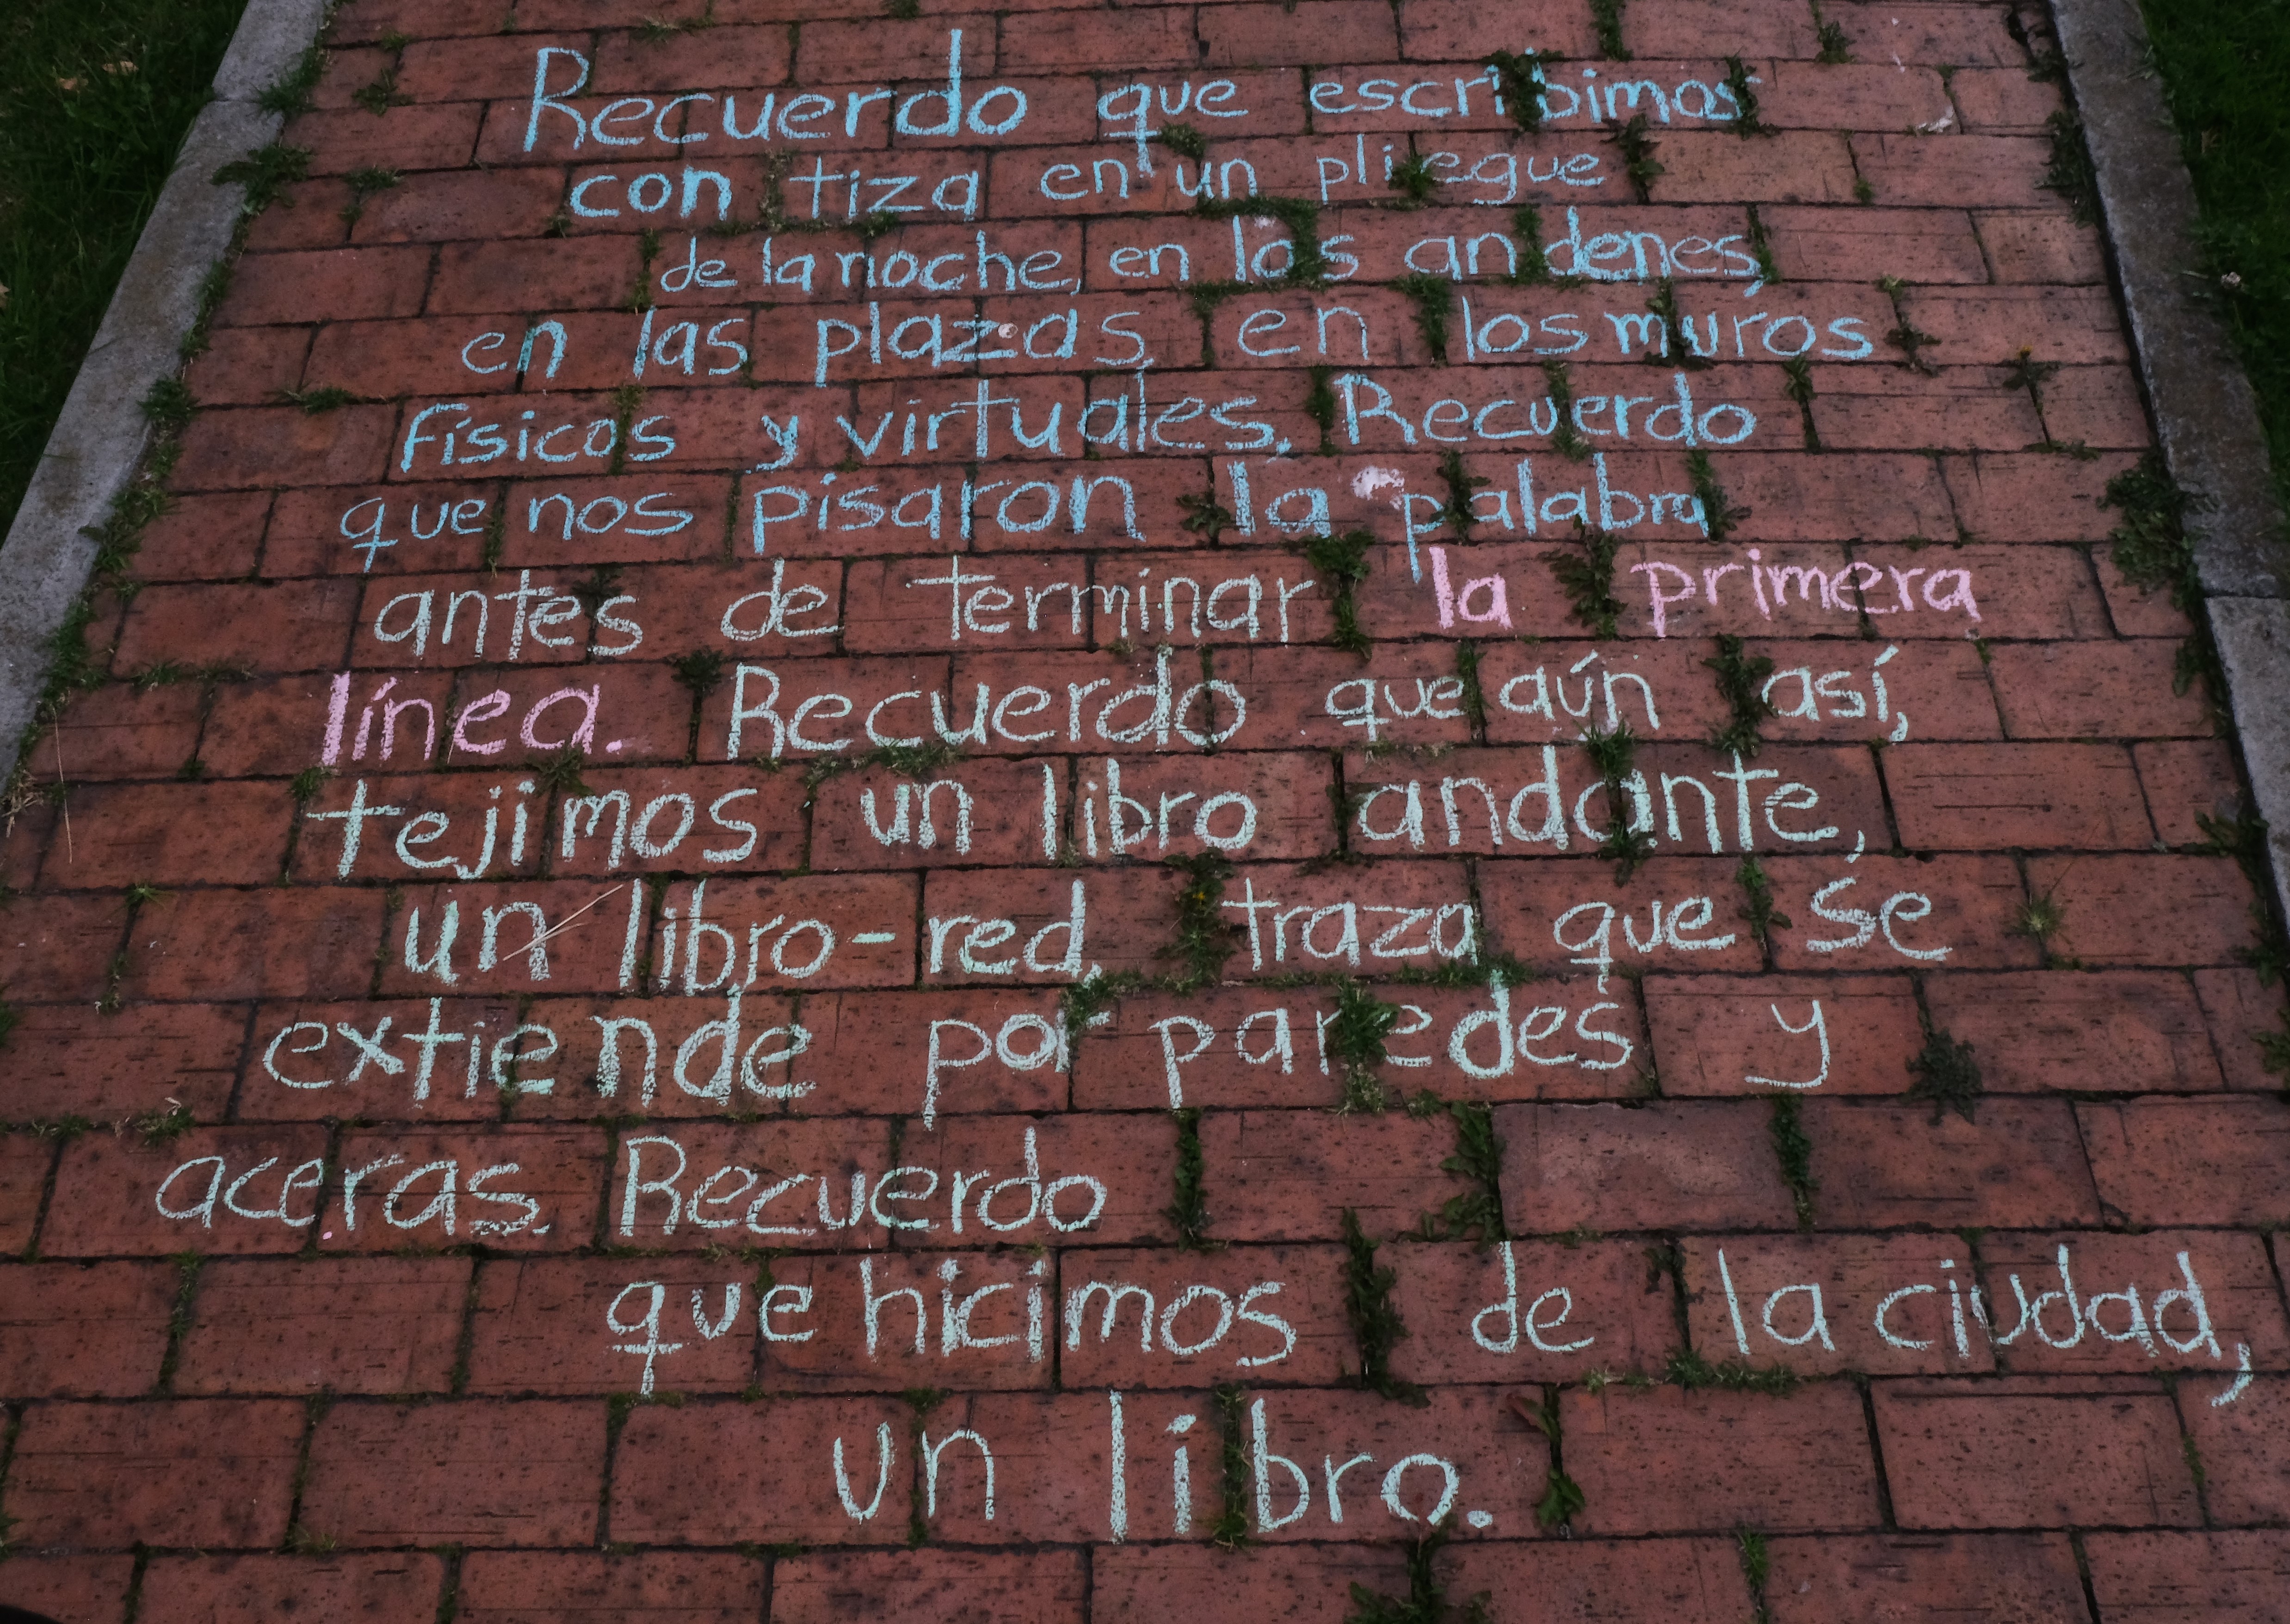 Recuerdo que escribimos
con tiza en un pliegue
de la noche, en los andenes,
en las plazas, en los muros
físicos y virtuales. Recuerdo
que nos pisaron la palabra
antes de terminar la primera
línea. Recuerdo que aún así,
tejimos un libro andante,
un libro-red, traza que se
extiende por paredes y
aceras. Recuerdo
que hicimos de la ciudad,
un libro.